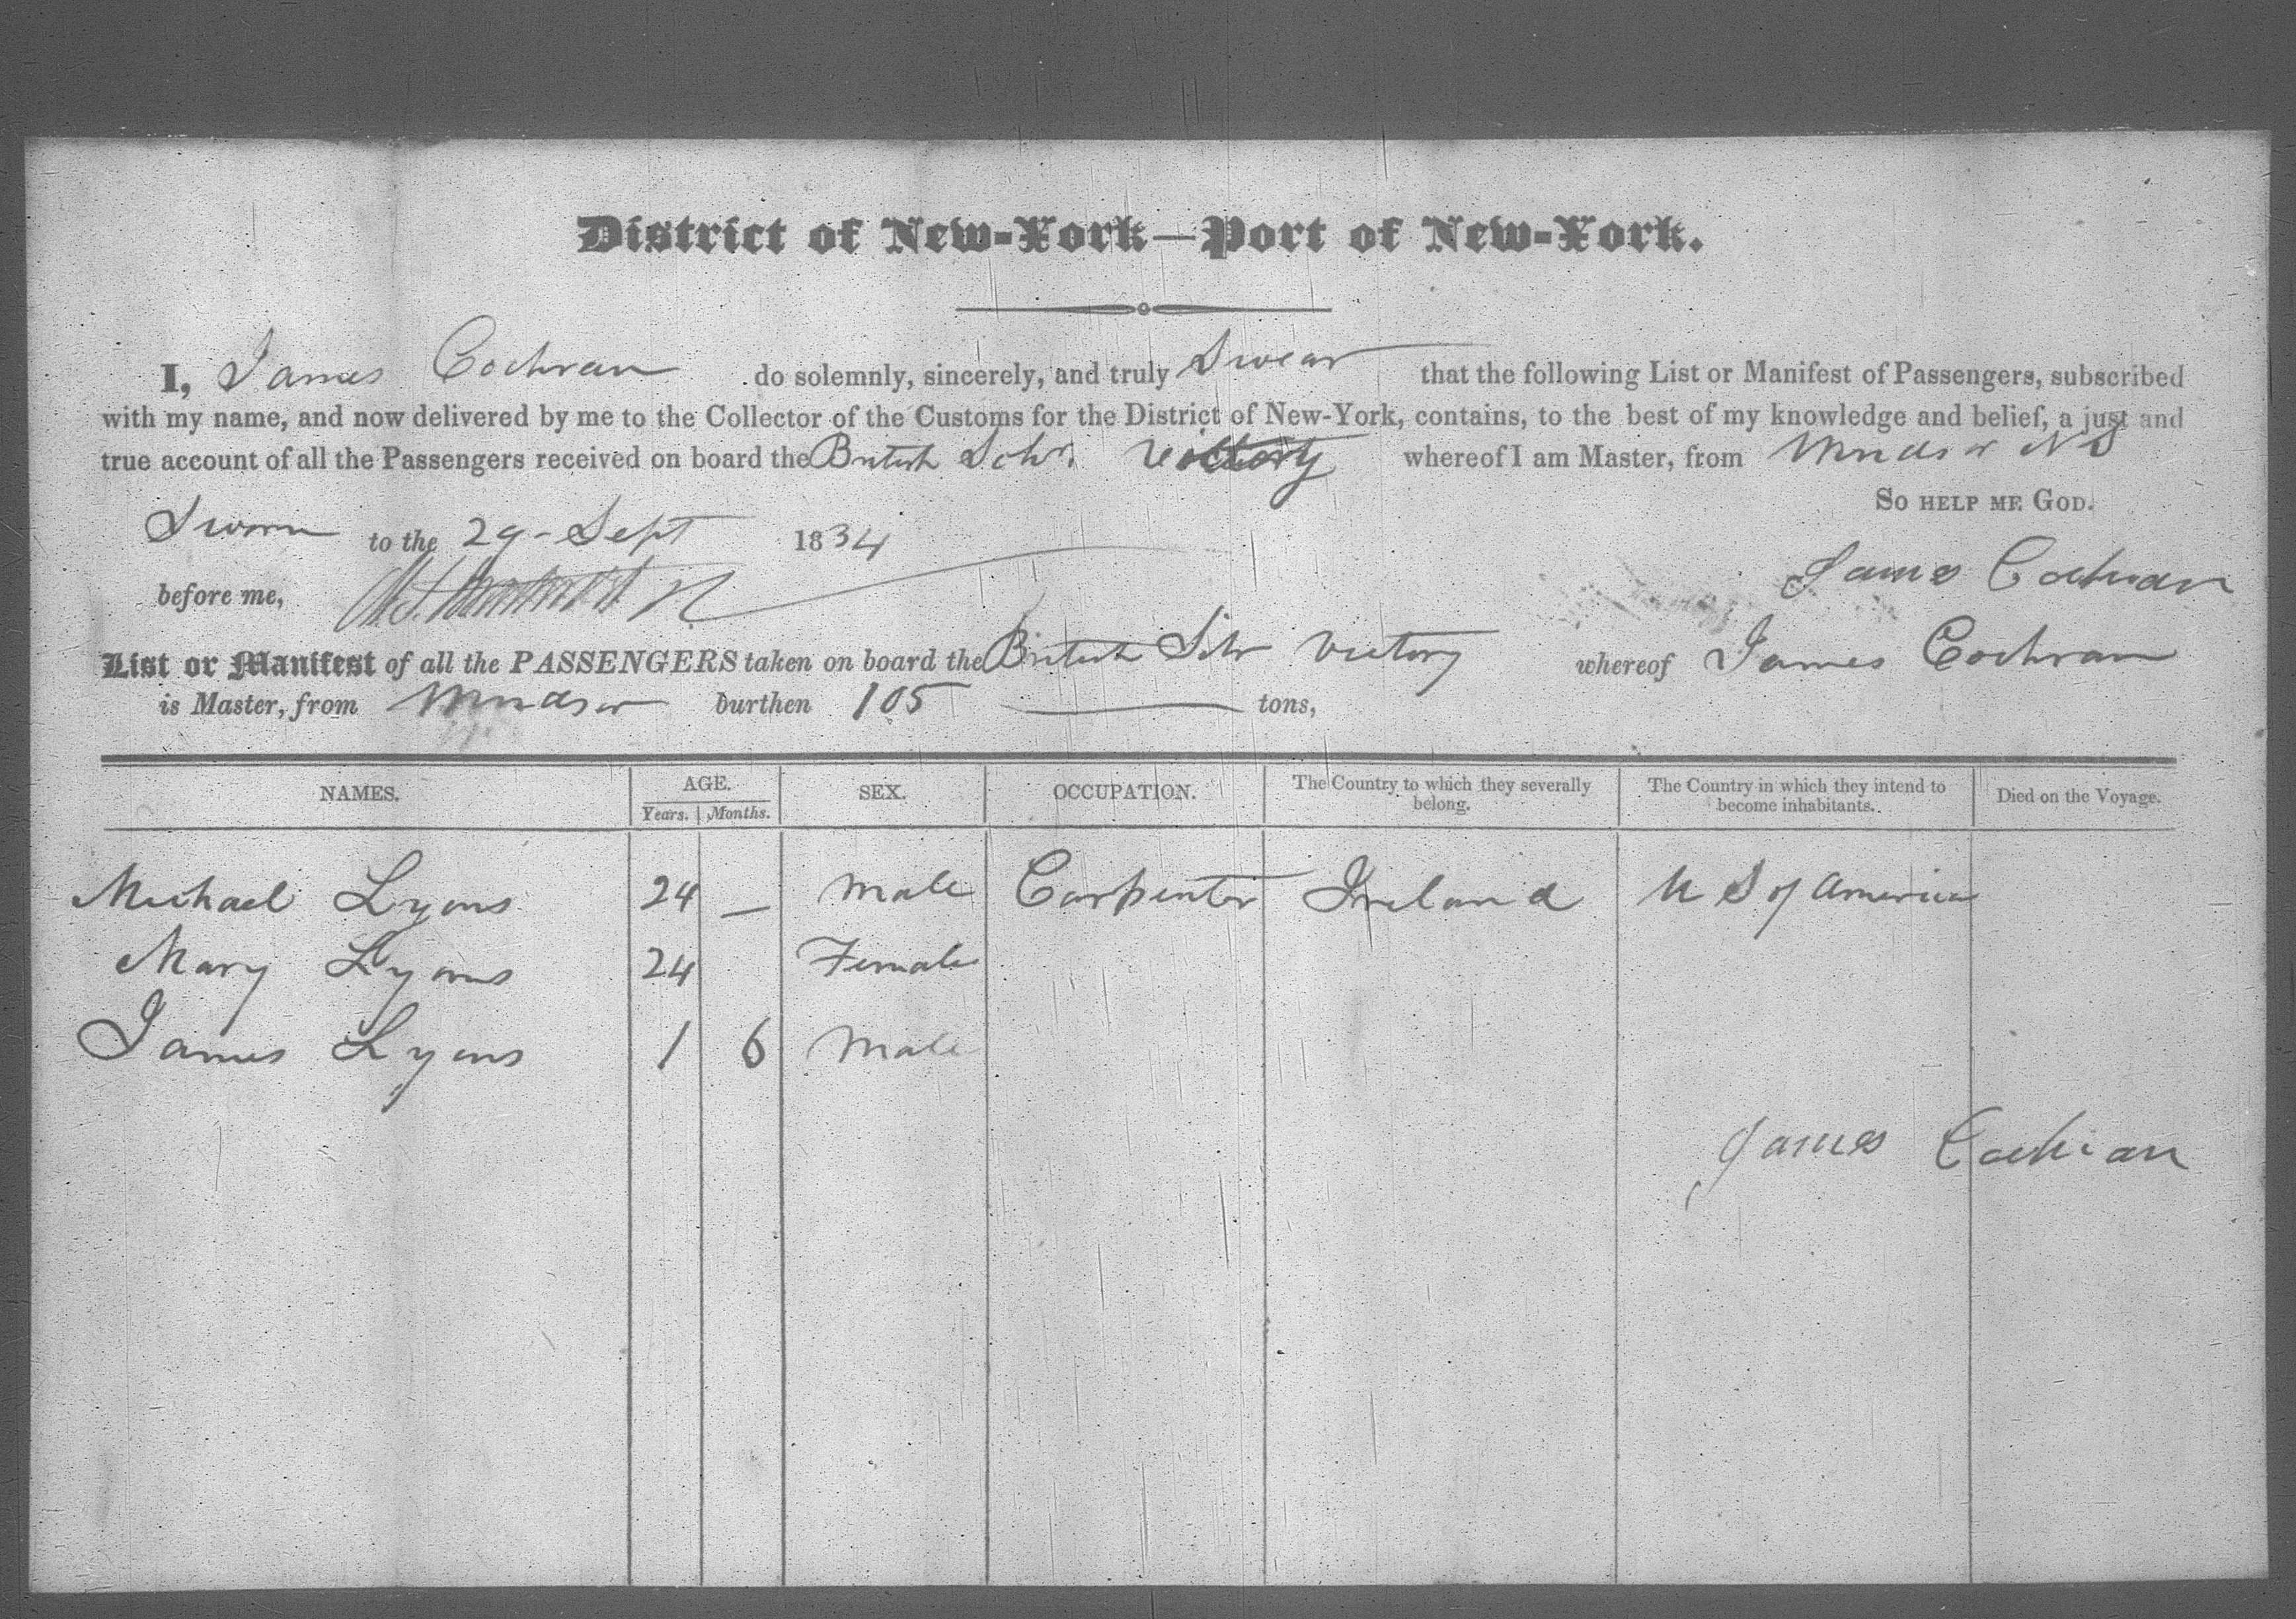 District of New-York—Port of New-York.
I, James Cochran do solemnly, sincerely, and truly Swear that the following List or Manifest of Passengers, subscribed
with my name, and now delivered by me to the Collector of the Customs for the District of New-York, contains, to the best of my knowledge and belief, a just and
true account of all the Passengers received on board the British Schr. Victory whereof I am Master, from Windsor NS
So help me God.
Sworn to the 29 - Sept 1834
James Cochran
before me,
List or Manifest of all the PASSENGERS taken on board the British Schr Victory whereof James Cochran
is Master, from Windsor burthen 105 tons,
NAMES. AGE. SEX. OCCUPATION. The Country to which they severally belong. The Country in which they intend to become inhabitants. Died on the Voyage.
Years. Months.
Michael Lyons 24 — Male Carpenter Ireland U S of America
Mary Lyons 24 Female
James Lyons 1 6 Male
James Cochran